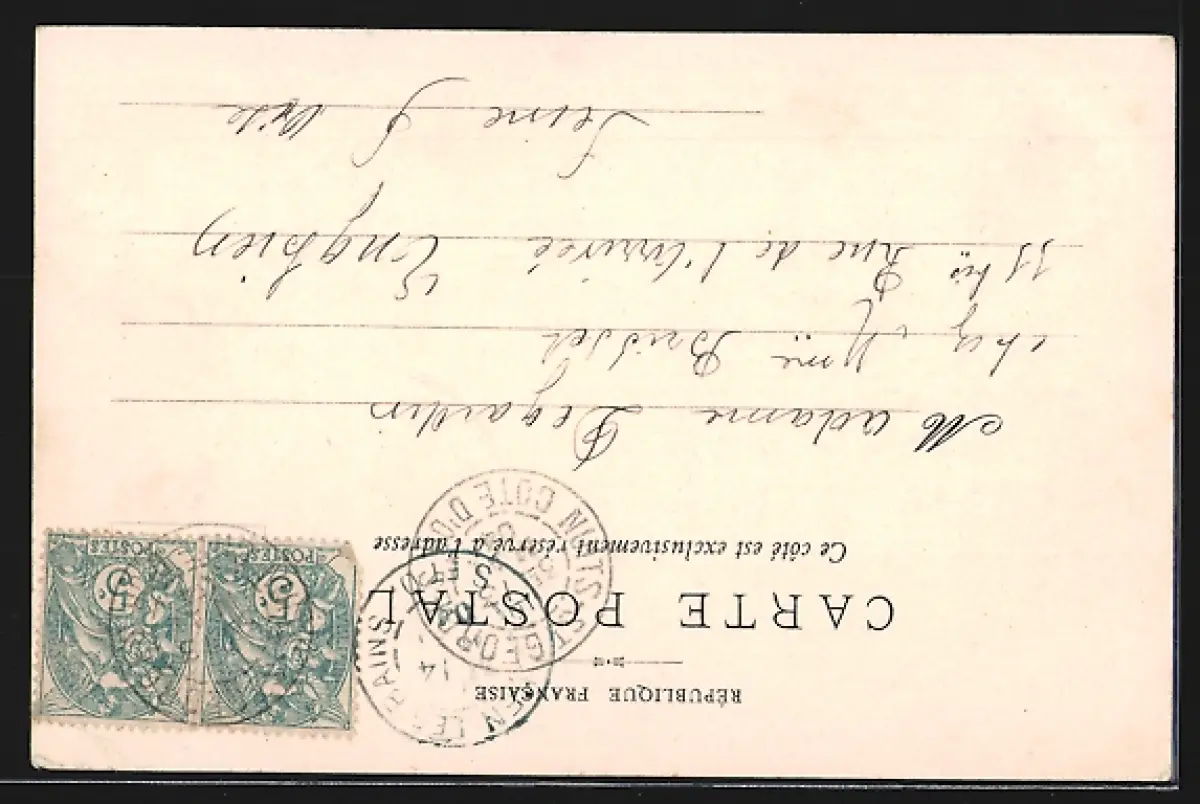 RÉPUBLIQUE FRANÇAISE
CARTE POSTALE
Ce côté est exclusivement réservé à l'adresse
POSTES
5
POSTES
5
NUITS ST GEORGES COTE D'OR
LES BAINS
S. ET O.
14
Madame
chez Mme
11 bis Rue de l'Arrivée Enghien
Seine & Oise